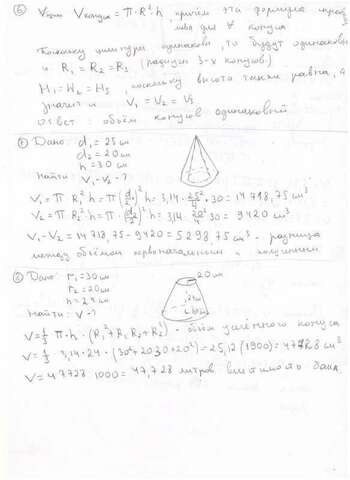 V конуса = π · R² · h причём эта формула
для ∀ конуса
Поскольку шнуры одинаковы, то будут одинаковы
и R₁ = R₂ = R₃ (радиусы 3-х конусов)
H₁ = H₂ = H₃, поскольку высота также равна, а
значит и V₁ = V₂ = V₃
Ответ: объём конусов одинаковый
Дано: d₁ = 25 см
d₂ = 20 см
h = 30 см
Найти: V₁-V₂ - ?
V₁ = π R₁² h = π (d₁/2)² h = 3,14 · 25²/4 · 30 = 14718,75 см³
V₂ = π R₂² h = π (d₂/2)² h = 3,14 · 20²/4 · 30 = 9420 см³
V₁-V₂ = 14718,75 - 9420 = 5298,75 см³ - разница
между объёмом первоначальным и полученным.
Дано: r₁ = 30 см
r₂ = 20 см
h = 24 см
Найти: V - ?
20 см
V = 1/3 π · h · (R₁² + R₁R₂ + R₂²) - объём усечённого конуса
V = 1/3 · 3,14 · 24 · (30² + 20·30 + 20²) = 25,12 (1900) = 47728 см³
V = 47728 : 1000 = 47,728 литров вместимость бака